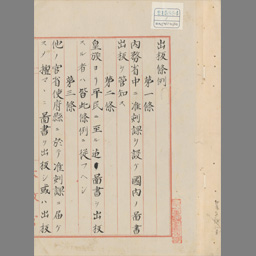 出版條例
第一條
内務省中ニ准刻課ヲ設ケ國内ノ圖書
出版ヲ管知ス
第二條
皇族ヨリ平民ニ至ル迄圖書ヲ出版
スル者ハ皆此條例ニ從フヘシ
第三條
他ノ官省使府縣ニ於テ准刻課ニ届ケ
スシテ擅ニ圖書ヲ出版シ或ハ出版